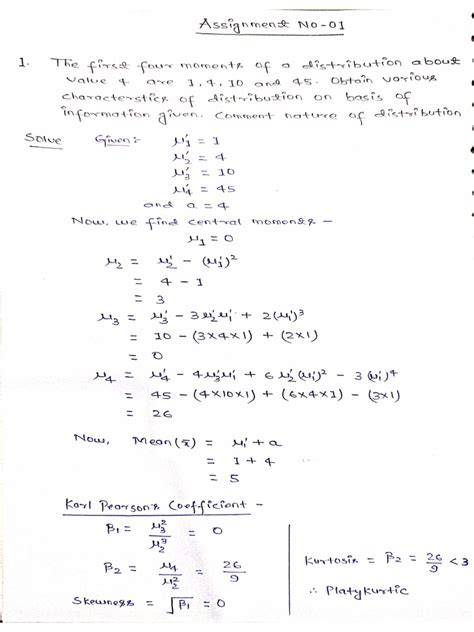 Assignment No-01
1. The first four moments of a distribution about
value 4 are 1, 4, 10 and 45. Obtain various
characterstics of distribution on basis of
information given. Comment nature of distribution
Solve Given:- μ₁' = 1
μ₂' = 4
μ₃' = 10
μ₄' = 45
and a = 4
Now, we find central moments -
μ₁ = 0
μ₂ = μ₂' - (μ₁')²
= 4 - 1
= 3
μ₃ = μ₃' - 3μ₂'μ₁' + 2(μ₁')³
= 10 - (3×4×1) + (2×1)
= 0
μ₄ = μ₄' - 4μ₃'μ₁' + 6μ₂'(μ₁')² - 3(μ₁')⁴
= 45 - (4×10×1) + (6×4×1) - (3×1)
= 26
Now, Mean(x̄) = μ₁' + a
= 1 + 4
= 5
Karl Pearson's Coefficient -
β₁ = μ₃²/μ₂³ = 0
β₂ = μ₄/μ₂² = 26/9
Skewness = √β₁ = 0
Kurtosis = β₂ = 26/9 < 3
∴ Platykurtic